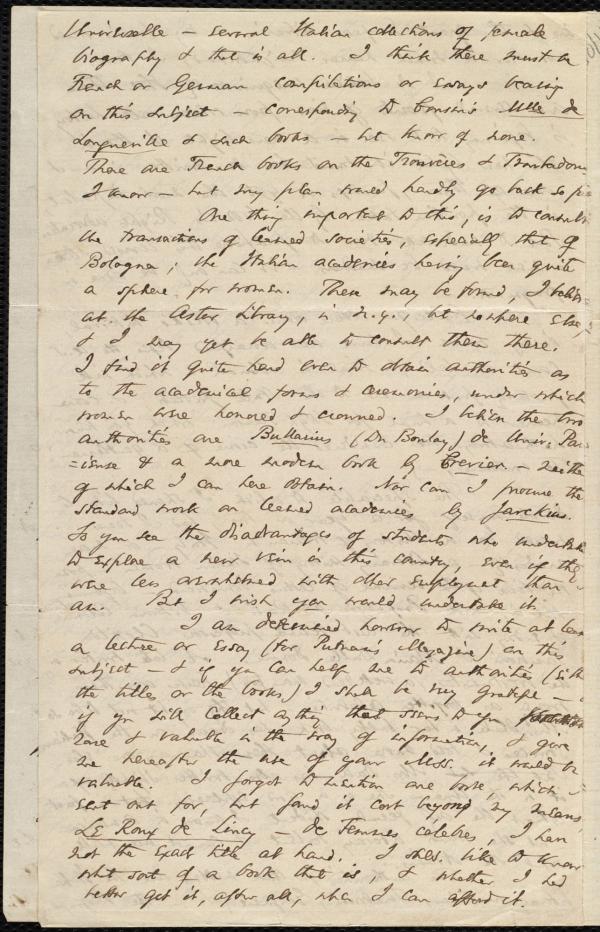 Universelle — several Italian collections of female
biography & that is all. I think there must be
French or German compilations or essays bearing
on this subject — corresponding to Cousin's Mlle de
Longueville & such books — but know of none.
There are French books on the Trouveres & Troubadours
I know — but my plan would hardly go back so
One thing important to this, is to consult
the transactions of learned societies, especially that of
Bologna; the Italian academies having been quite
a sphere for women. These may be found, I believe
at the Astor Library, in N.Y., but nowhere else,
& I may yet be able to consult them there.
I find it quite hard even to obtain authorities as
to the academical forms & ceremonies, under which
women were honored & crowned. I believe the two
authorities are Bullaeus (Du Boulay) de Univ. Par-
=isiense & a more modern book by Crevier — neither
of which I can here obtain. Nor can I procure the
standard work on learned academies by Jarckius.
So you see the disadvantages of students who undertake
to explore a new vein in this country, even if they
were less overwhelmed with other employment than
am. But I wish you would undertake it.
I am determined however to write at least
a lecture or essay (for Putnam's Magazine) on this
subject — & if you can help me to authorities (either
the titles or the books) I shall be very grateful —
if you will collect anything that seems to you
rare & valuable in the way of information, & give
me hereafter the use of your Mss. it would be
valuable. I forgot to mention one book, which I
sent out for, but found it cost beyond my means,
Le Roux de Lincy — de Femmes celebres, I have
not the exact title at hand. I shd. like to know
what sort of a book that is, & whether I had
better get it, after all, when I can afford it.